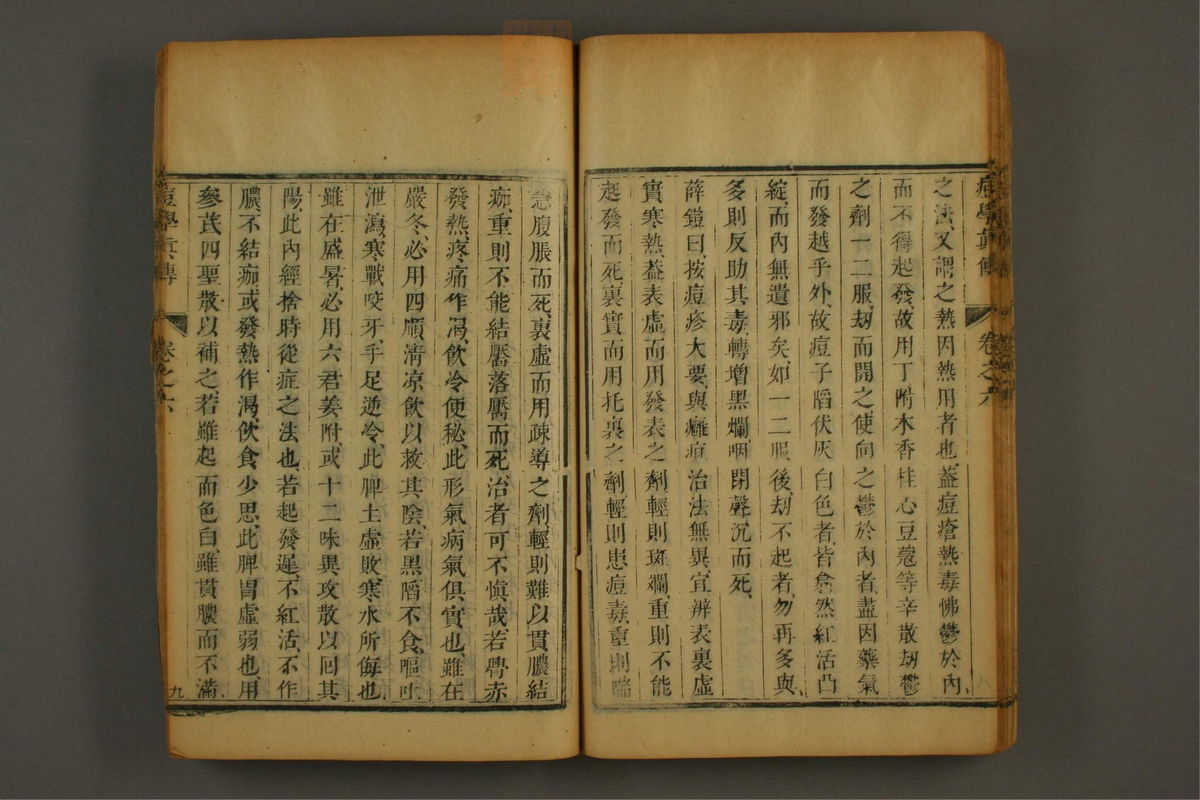 痘學眞傳 卷之六
之法、又謂之熱因熱用者也、葢痘瘡熱毒怫鬱於內、
而不得起發、故用丁附木香桂心豆蔻等辛散刧鬱
之劑一二服、刧而開之、使向之鬱於內者、盡因藥氣
而發越乎外、故痘子陷伏灰白色者、皆翕然紅活凸
綻、而內無遺邪矣、如一二服後、刧不起者、勿再多與、
多則反助其毒、轉增黑爛、咽閉聲沉而死、
薛鎧曰、按痘疹大要、與癰疽治法無異、宜辨表裏虛
實寒熱、葢表虛而用發表之劑、輕則斑爛、重則不能
起發而死、裏實而用托裏之劑、輕則患痘毒、重則喘
急腹脹而死、裏虛而用疎導之劑、輕則難以貫膿結
痂、重則不能結靨落靨而死、治者可不愼哉、若䐜赤
發熱、疼痛作渴、飮冷便秘、此形氣病氣俱實也、雖在
嚴冬、必用四順淸凉飮以救其陰、若黑陷不食、嘔吐
泄瀉、寒戰咬牙、手足逆冷、此脾土虛敗、寒水所侮也、
雖在盛暑、必用六君姜附、或十二味異攻散以囘其
陽、此內經捨時從症之法也、若起發遲、不紅活、不作
膿、不結痂、或發熱作渴、飮食少思、此脾胃虛弱也、用
參芪四聖散以補之、若雖起而色白、雖貫膿而不滿、
痘學眞傳 卷之六 九